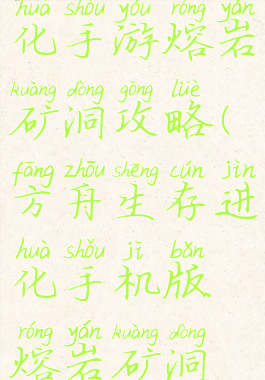 huà shǒu yóu róng yán
化手游熔岩
kuàng dòng gōng lüè
矿洞攻略(
fāng zhōu shēng cún jìn
方舟生存进
huà shǒu jī bǎn
化手机版
róng yán kuàng dòng
熔岩矿洞